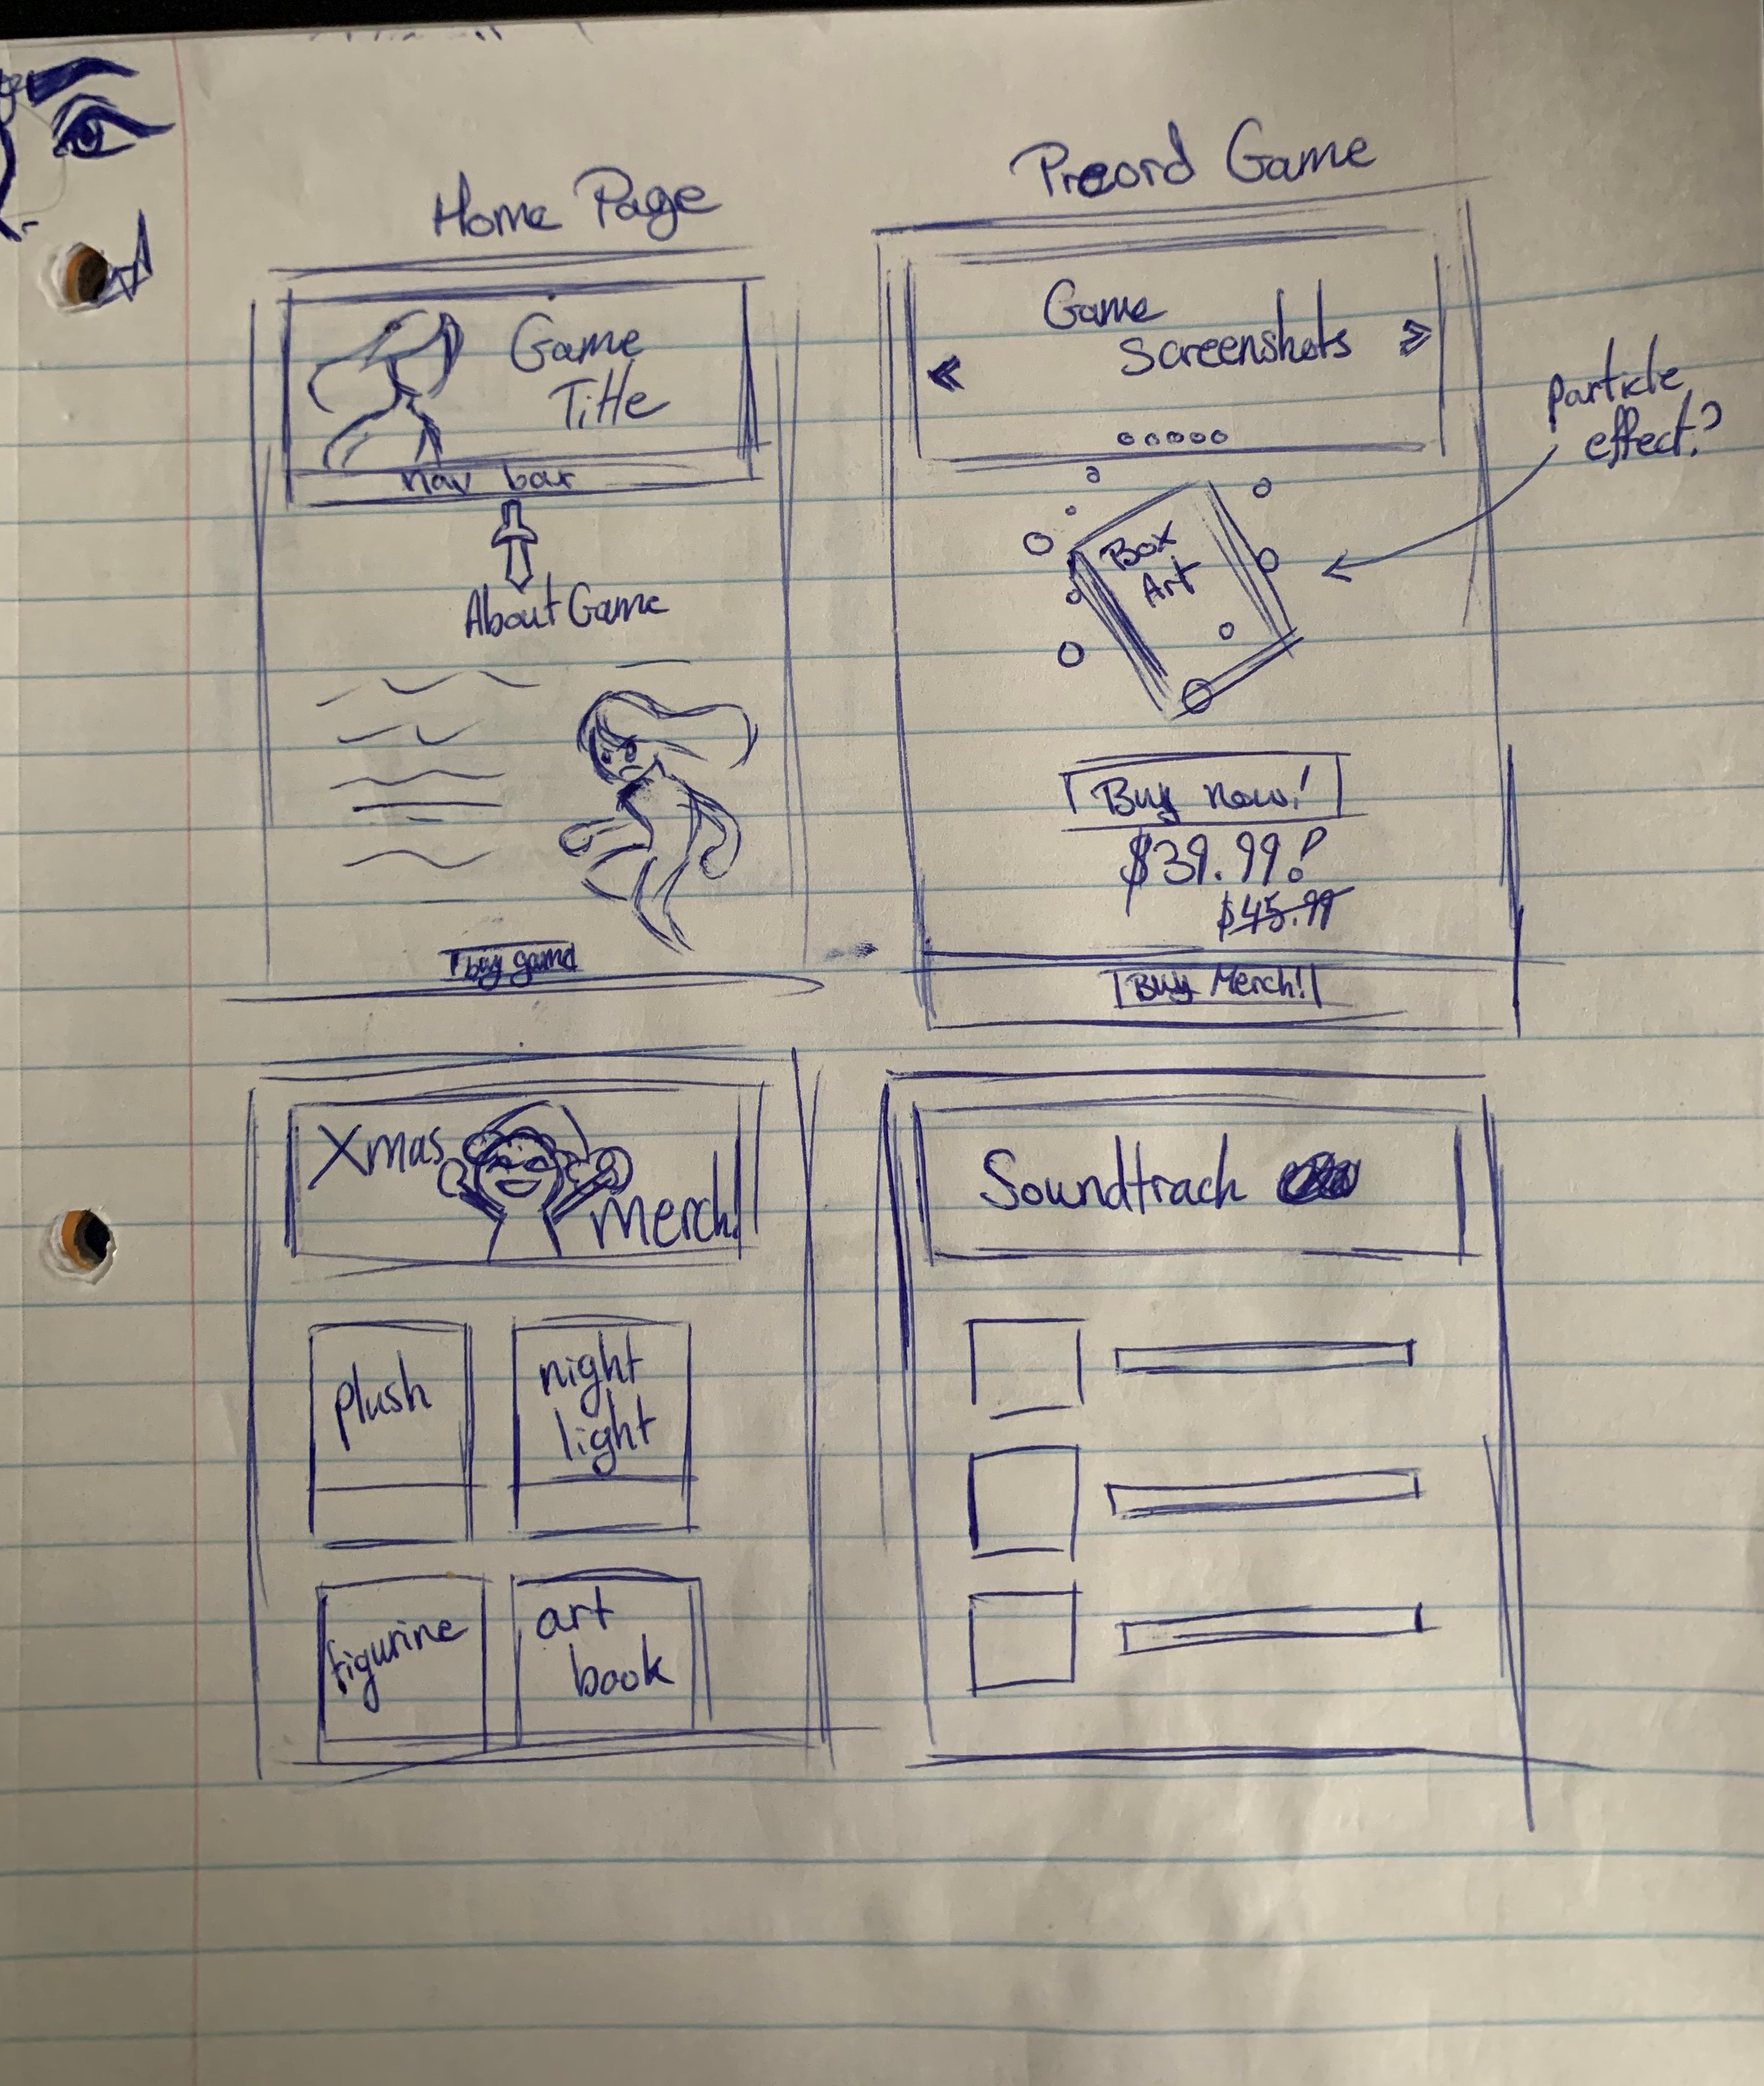 Home Page
Game
Title
nav bar
About Game
buy game
Preord Game
Game
Screenshots
particle
effect?
Box
Art
Buy now!
$39.99!
$45.99
Buy Merch!
Xmas
Merch!
plush
night
light
figurine
art
book
Soundtrack